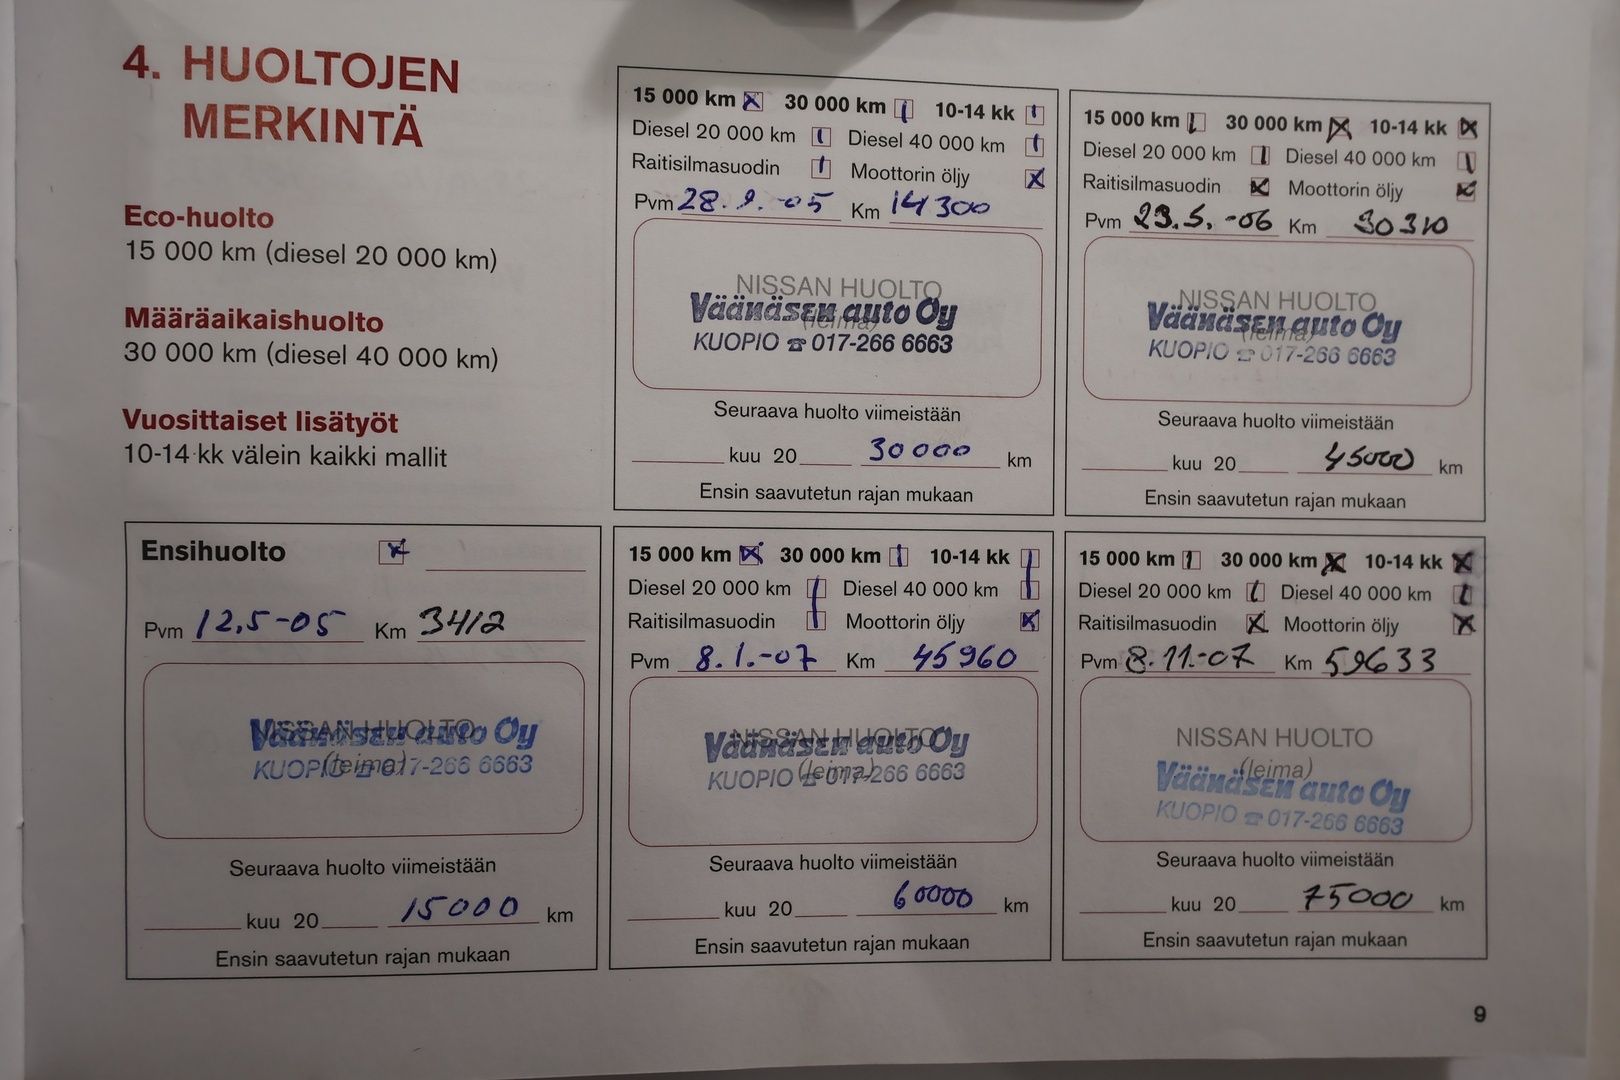 4. HUOLTOJEN
MERKINTÄ
Eco-huolto
15 000 km (diesel 20 000 km)
Määräaikaishuolto
30 000 km (diesel 40 000 km)
Vuosittaiset lisätyöt
10-14 kk välein kaikki mallit
15 000 km 30 000 km 10-14 kk
Diesel 20 000 km Diesel 40 000 km
Raitisilmasuodin Moottorin öljy
Pvm 28.9.-05 Km 14300
NISSAN HUOLTO
Väänäsen auto Oy
(leima)
KUOPIO ☎ 017-266 6663
Seuraava huolto viimeistään
kuu 20 30000 km
Ensin saavutetun rajan mukaan
15 000 km 30 000 km 10-14 kk
Diesel 20 000 km Diesel 40 000 km
Raitisilmasuodin Moottorin öljy
Pvm 23.5.-06 Km 30310
NISSAN HUOLTO
Väänäsen auto Oy
(leima)
KUOPIO ☎ 017-266 6663
Seuraava huolto viimeistään
kuu 20 45000 km
Ensin saavutetun rajan mukaan
Ensihuolto
Pvm 12.5-05 Km 3412
NISSAN HUOLTO
Väänäsen auto Oy
(leima)
KUOPIO ☎ 017-266 6663
Seuraava huolto viimeistään
kuu 20 15000 km
Ensin saavutetun rajan mukaan
15 000 km 30 000 km 10-14 kk
Diesel 20 000 km Diesel 40 000 km
Raitisilmasuodin Moottorin öljy
Pvm 8.1.-07 Km 45960
NISSAN HUOLTO
Väänäsen auto Oy
(leima)
KUOPIO ☎ 017-266 6663
Seuraava huolto viimeistään
kuu 20 60000 km
Ensin saavutetun rajan mukaan
15 000 km 30 000 km 10-14 kk
Diesel 20 000 km Diesel 40 000 km
Raitisilmasuodin Moottorin öljy
Pvm 8.11.-07 Km 59633
NISSAN HUOLTO
(leima)
Väänäsen auto Oy
KUOPIO ☎ 017-266 6663
Seuraava huolto viimeistään
kuu 20 75000 km
Ensin saavutetun rajan mukaan
9